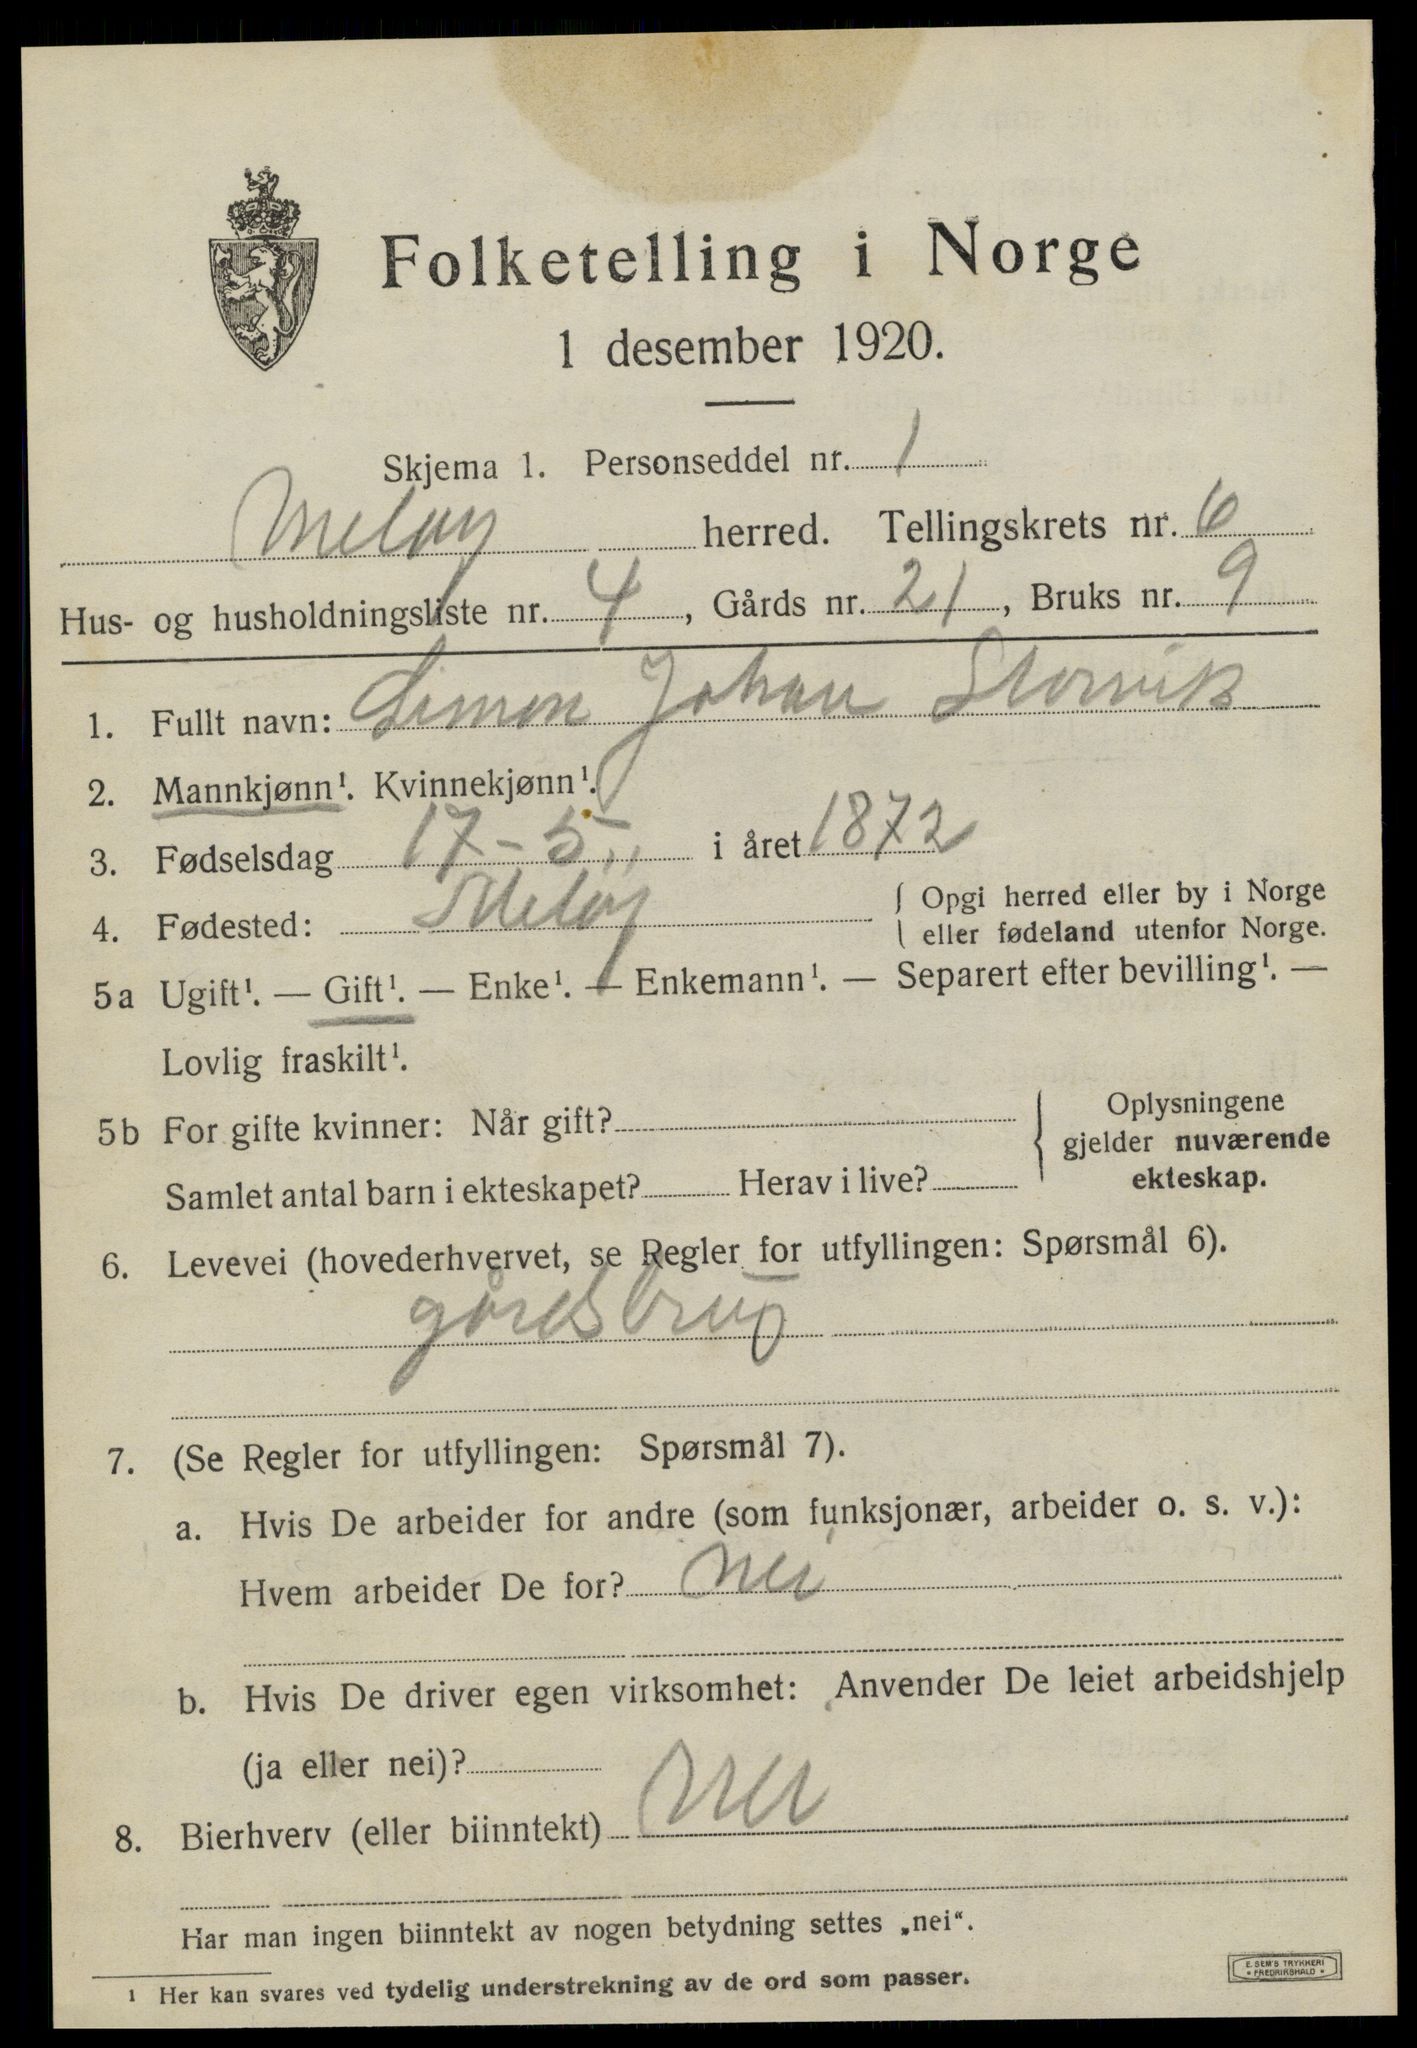 Folketelling i Norge
1 desember 1920.
Skjema 1. Personseddel nr. 1
Meløy herred. Tellingskrets nr. 6
Hus- og husholdningsliste nr. 4, Gårds nr. 21, Bruks nr. 9
1. Fullt navn: Simon Johan Storvik
2. Mannkjønn¹. Kvinnekjønn¹.
3. Fødselsdag 17-5 i året 1872
4. Fødested: Meløy { Opgi herred eller by i Norge
eller fødeland utenfor Norge.
5a Ugift¹. — Gift¹. — Enke¹. — Enkemann¹. — Separert efter bevilling¹. —
Lovlig fraskilt¹.
5b For gifte kvinner: Når gift? { Oplysningene
gjelder nuværende
Samlet antal barn i ekteskapet? Herav i live? ekteskap.
6. Levevei (hovederhvervet, se Regler for utfyllingen: Spørsmål 6).
gårdsbrug
7. (Se Regler for utfyllingen: Spørsmål 7).
a. Hvis De arbeider for andre (som funksjonær, arbeider o. s. v.):
Hvem arbeider De for? nei
b. Hvis De driver egen virksomhet: Anvender De leiet arbeidshjelp
(ja eller nei)?
8. Bierhverv (eller biinntekt) nei
Har man ingen biinntekt av nogen betydning settes „nei“.
¹ Her kan svares ved tydelig understrekning av de ord som passer.
E. SEM'S TRYKKERI
• FREDRIKSHALD •